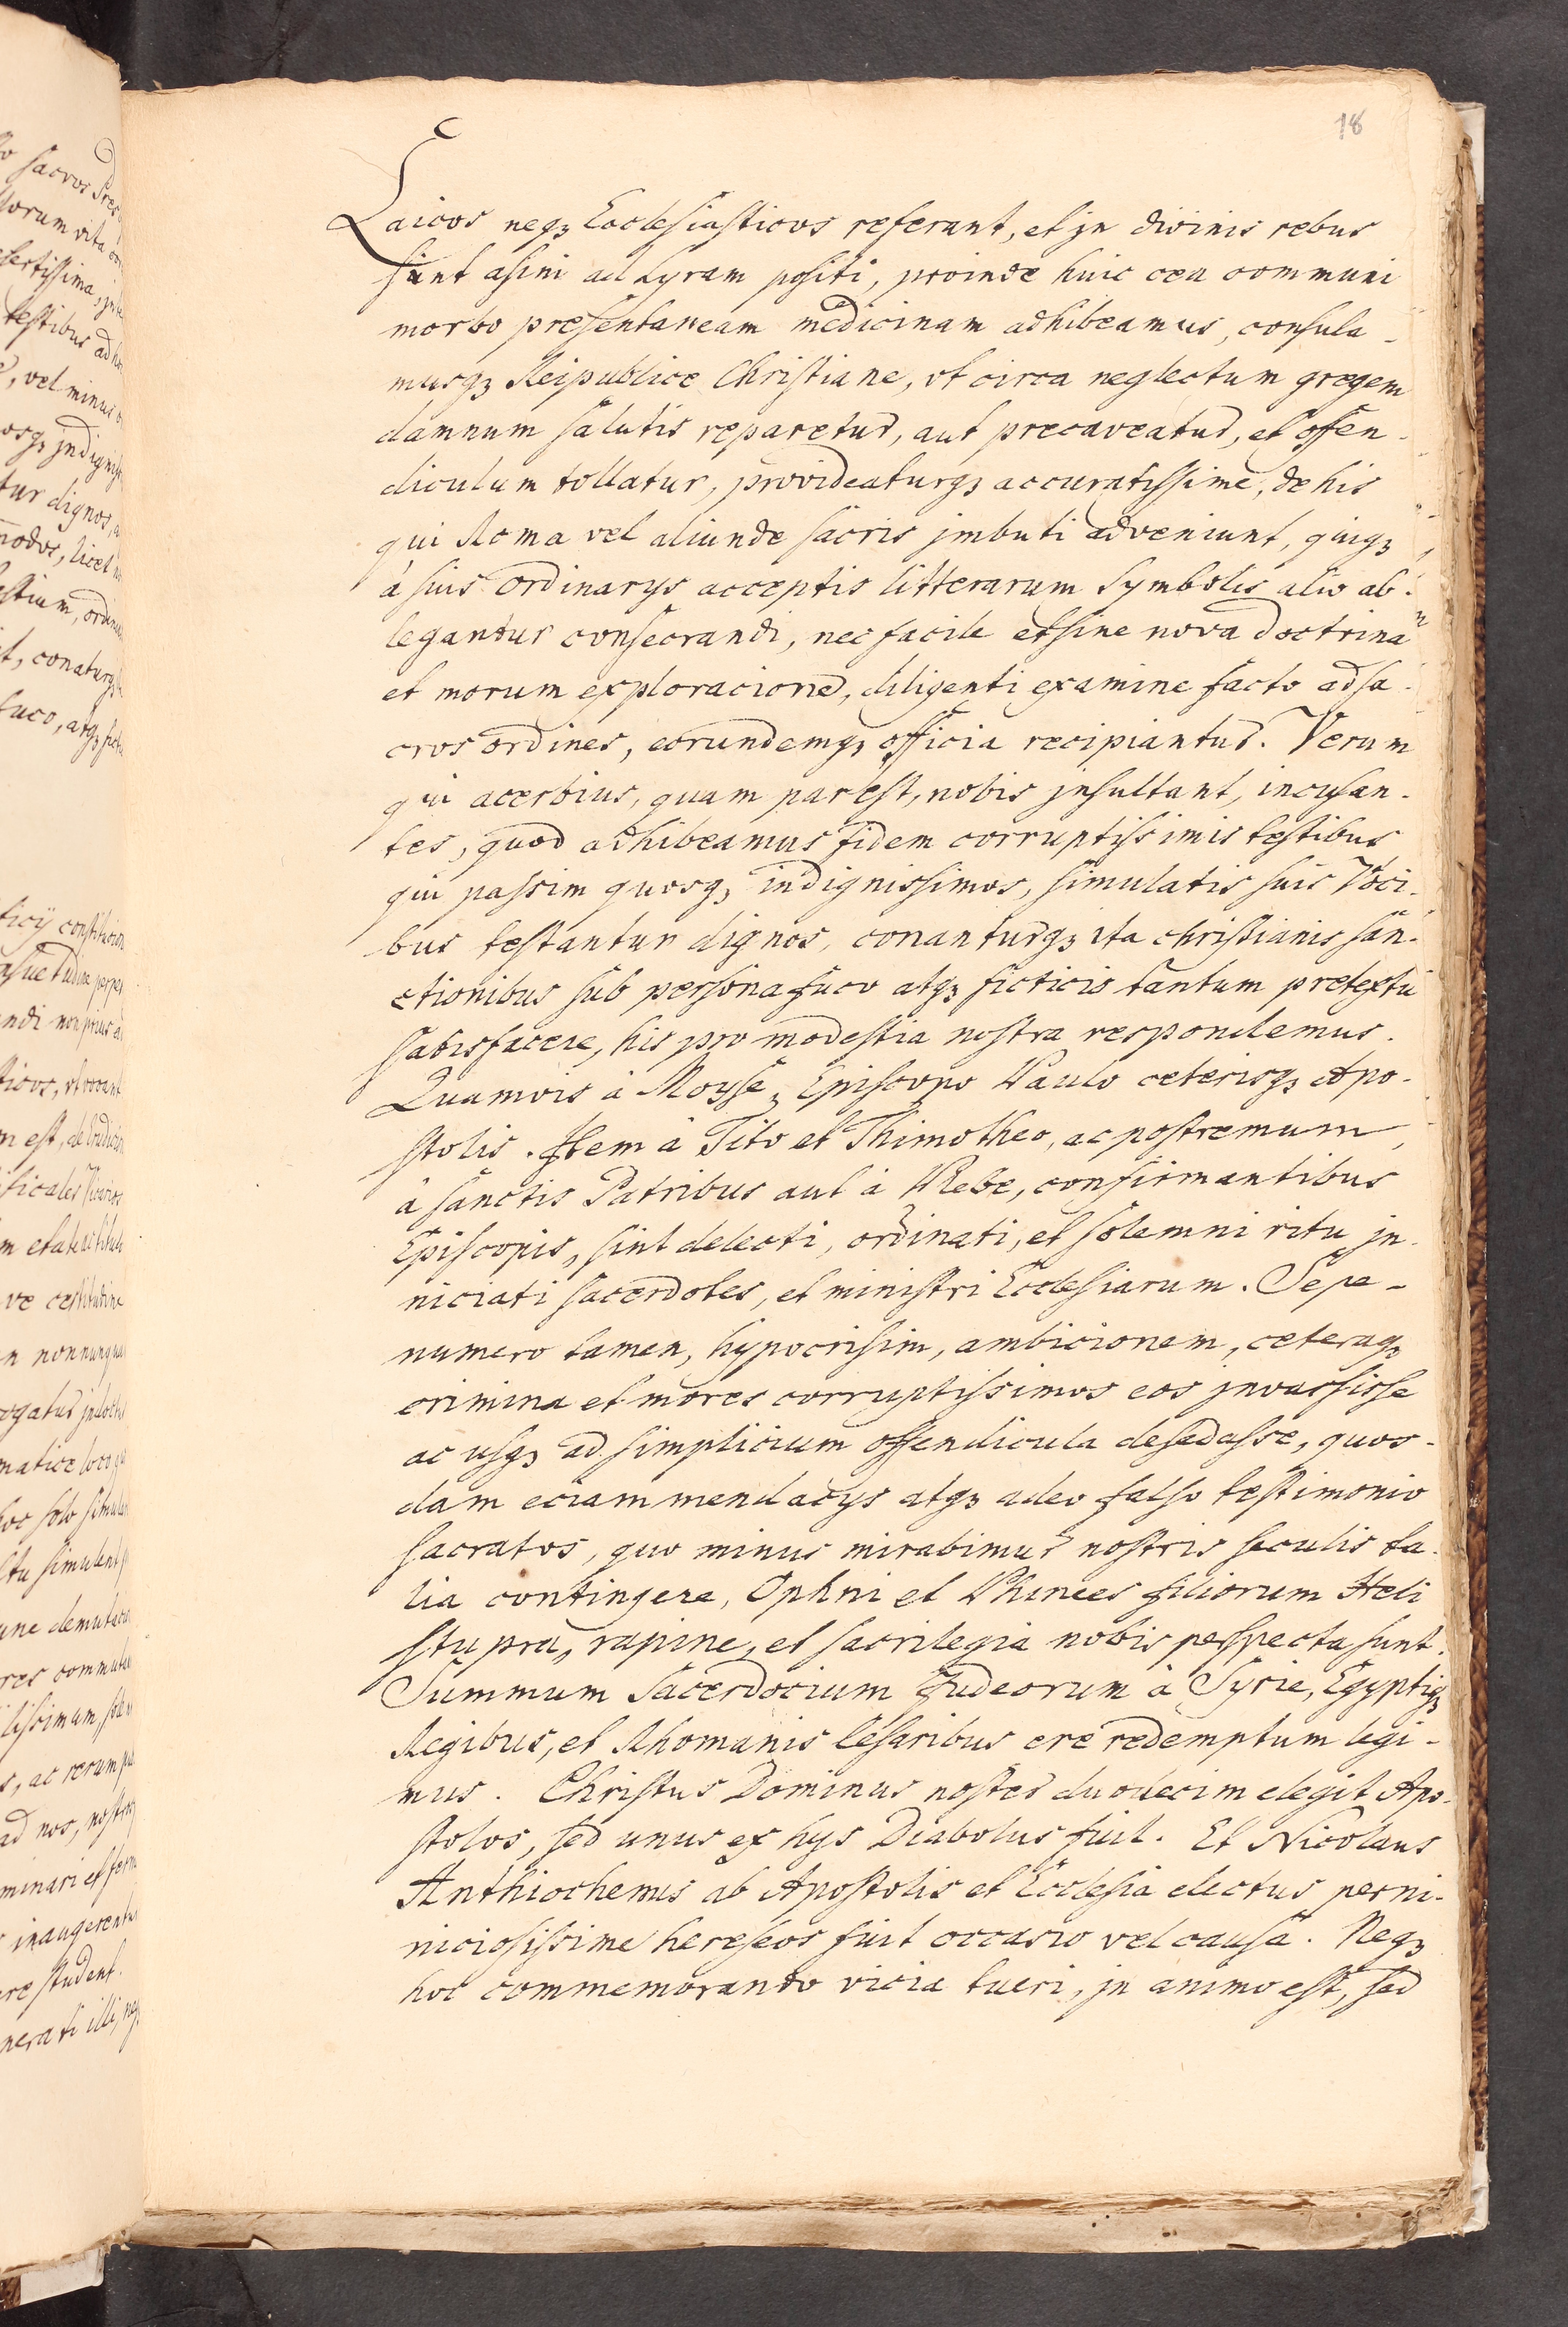 18
Laicos neqꝫ Ecclesiasticos referant, et jn divinis rebus
sunt asini ad Lyram positi, proinde huic ceu communi
morbo presentaneam medicinam adhibeamus, consula-
musqꝫ Reipublice Christiane, vt circa neglectum gregem
damnum salutis reparetur, aut precaveatur, et offen-
diculum tollatur, provideaturqꝫ accuratissime, de his
qui Roma vel aliunde sacris jmbuti adveniunt, quiqꝫ
à suis ordinarys acceptis litterarum Symbolis alio ab-
legantur consecrandi, nec facile et sine nova doctrina
et morum exploracione, diligenti examine facto ad sa-
cros ordines, eorundemqꝫ officia recipiantur. Verum
qui acerbius, quam par est, nobis jnsultant, incusan-
tes, quod adhibeamus fidem corruptissimis testibus
qui passim quosqꝫ indignissimos, simulatis suis Voci-
bus testantur dignos, conanturqꝫ ita christianis san-
ctionibus sub persona fuco atqꝫ ficticio tantum pretextu
satisfacere, his pro modestia nostra respondemus.
Quamvis à Moyse, Episcopo Paulo ceterisqꝫ Apo-
stolis. Item à Tito et Thimotheo, ac postremum,
à sanctis Patribus aut à Plebe, confirmantibus
Episcopis, sint delecti, ordinati, et solemni ritu jn-
niciati sacerdotes, et ministri Ecclesiarum. Sepe-
numero tamen, hypocrisim, ambicionem, ceteraqꝫ
crimina et mores corruptissimos eos jnvassisse
ac usqꝫ ad simplicium offendicula desedasse, quos-
dam eciam mendacys atqꝫ adeo falso testimonio
sacratos, quo minus mirabimur nostris seculis ta-
lia contingere, Ophni et Phinees filiorum Heli
stupra, rapine, et sacrilegia nobis perspecta sunt.
Summum Sacerdocium Judeorum à Syrie, Egyptiqꝫ
Regibus, et Rhomanis Cesaribus ere redemptum legi-
mus. Christus Dominus noster duodecim elegit Apo-
stolos, sed unus ex hys Diabolus fuit. Et Nicolaus
Anthiochenus ab Apostolis et Ecclesia electus perni-
niciosissime hereseos fuit occasio vel causa. Neqꝫ
hoc commemorando vicia tueri, jn animo est, sed